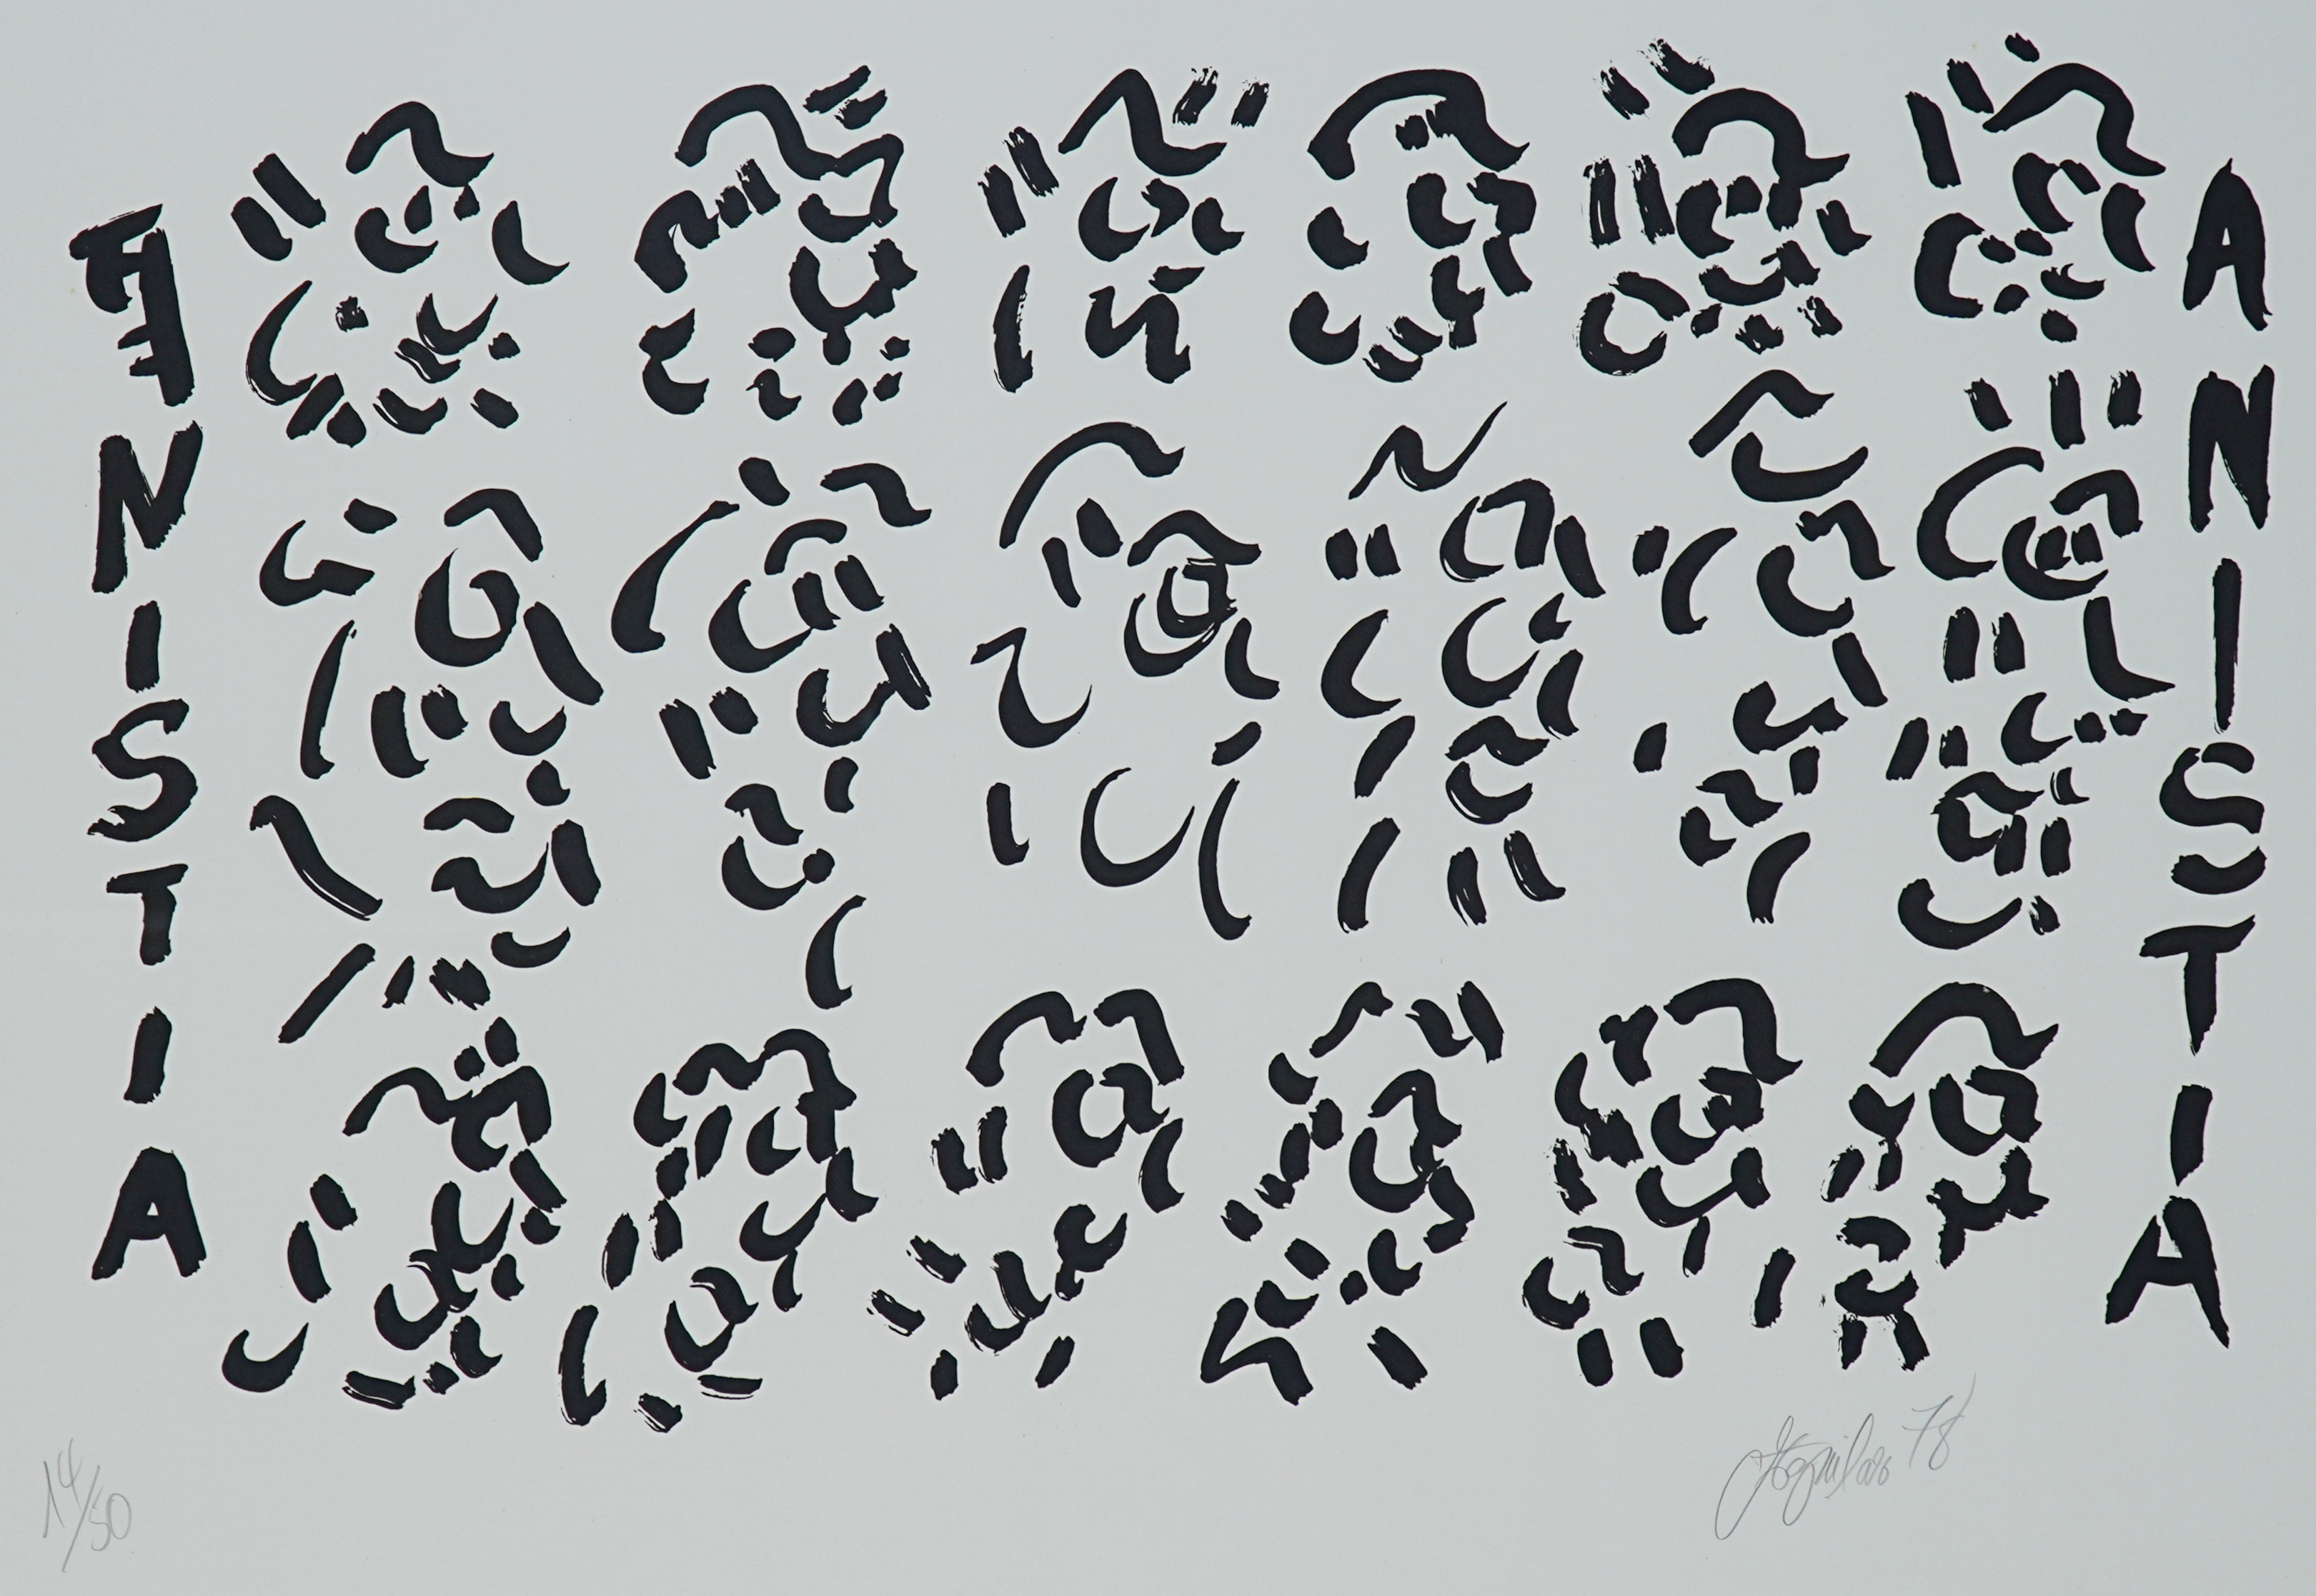 ANISTIA
ANISTIA
14/50
J Aguilar 78